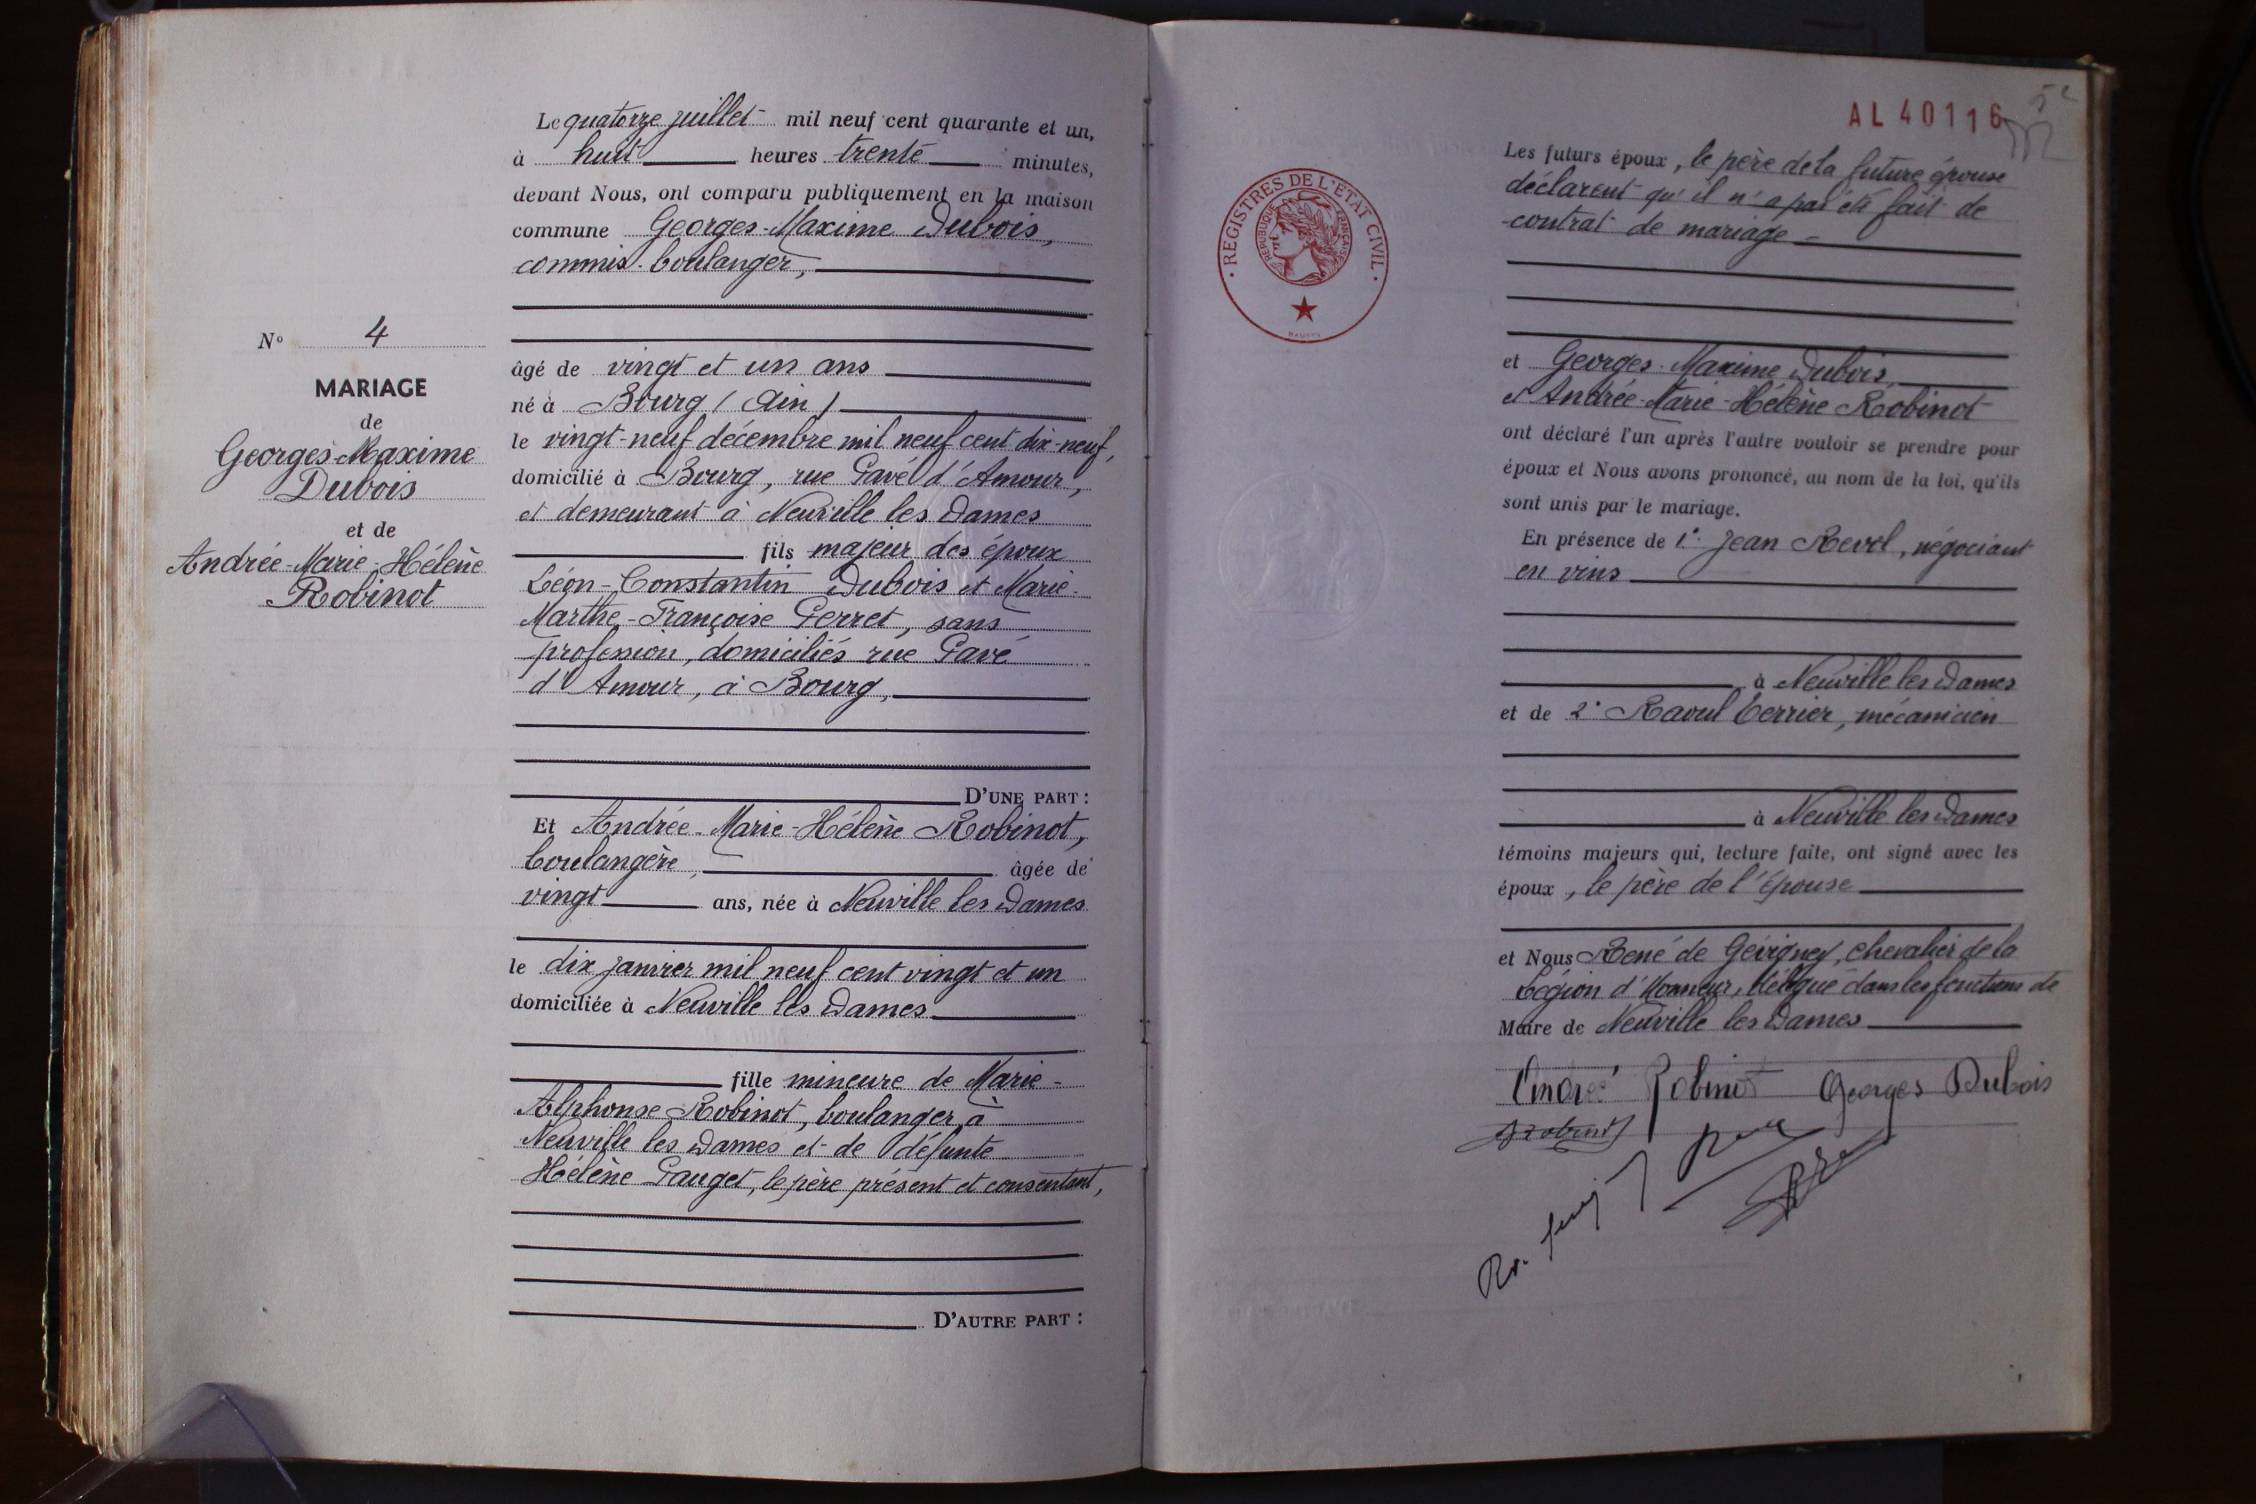 Le quatorze juillet mil neuf cent quarante et un,
à huit heures trente minutes,
devant Nous, ont comparu publiquement en la maison
commune Georges-Maxime Dubois,
commis-boulanger,
âgé de vingt et un ans
né à Bourg (Ain)
le vingt-neuf décembre mil neuf cent dix-neuf,
domicilié à Bourg, rue Pavé d'Amour,
et demeurant à Neuville les Dames
fils majeur des époux
Léon-Constantin Dubois et Marie-
Marthe-Françoise Perret, sans
profession, domiciliés rue Pavé
d'Amour, à Bourg,
D'UNE PART :
Et Andrée-Marie-Hélène Robinot,
boulangère, âgée de
vingt ans, née à Neuville les Dames
le dix janvier mil neuf cent vingt et un
domiciliée à Neuville les Dames
fille mineure de Marie-
Alphonse Robinot, boulanger à
Neuville les Dames et de défunte
Hélène Pauget, le père présent et consentant,
D'AUTRE PART :
Nº 4
MARIAGE
de
Georges-Maxime
Dubois
et de
Andrée-Marie-Hélène
Robinot
AL 40116
REGISTRES DE L'ETAT CIVIL
REPUBLIQUE FRANÇAISE
Les futurs époux, le père de la future épouse
déclarent qu'il n'a pas été fait de
contrat de mariage
et Georges-Maxime Dubois,
et Andrée-Marie-Hélène Robinot
ont déclaré l'un après l'autre vouloir se prendre pour
époux et Nous avons prononcé, au nom de la loi, qu'ils
sont unis par le mariage.
En présence de 1º Jean Revol, négociant
en vins
à Neuville les Dames
et de 2º Raoul Terrier, mécanicien
à Neuville les Dames
témoins majeurs qui, lecture faite, ont signé avec les
époux, le père de l'épouse
et Nous René de Gévigney, chevalier de la
Légion d'Honneur, délégué dans les fonctions de
Maire de Neuville les Dames
Robinot Georges Dubois